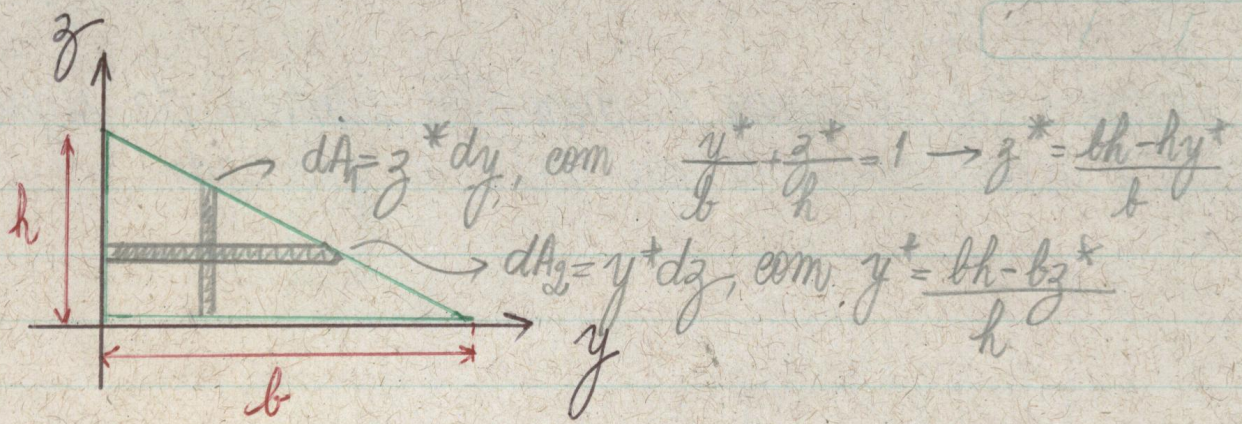 z
dA₁ = z* dy, com y*/b + z*/h = 1 → z* = bh - hy*/b
h
dA₂ = y* dz, com y* = bh - bz*/h
y
b